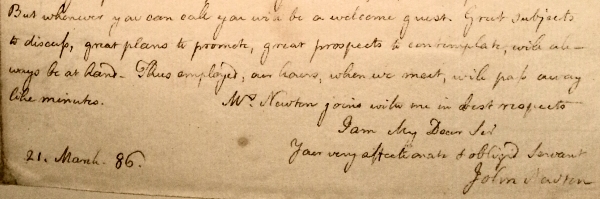 But whenever you can call you will be a welcome guest. Great subjects
to discuss, great plans to promote, great prospects to contemplate, will al-
ways be at hand. Thus employed, our hours, when we meet, will pass away
like minutes. Mrs. Newton joins with me in best respects
I am My Dear Sir
21. March. 86. Your very affectionate & obliged Servant
John Newton